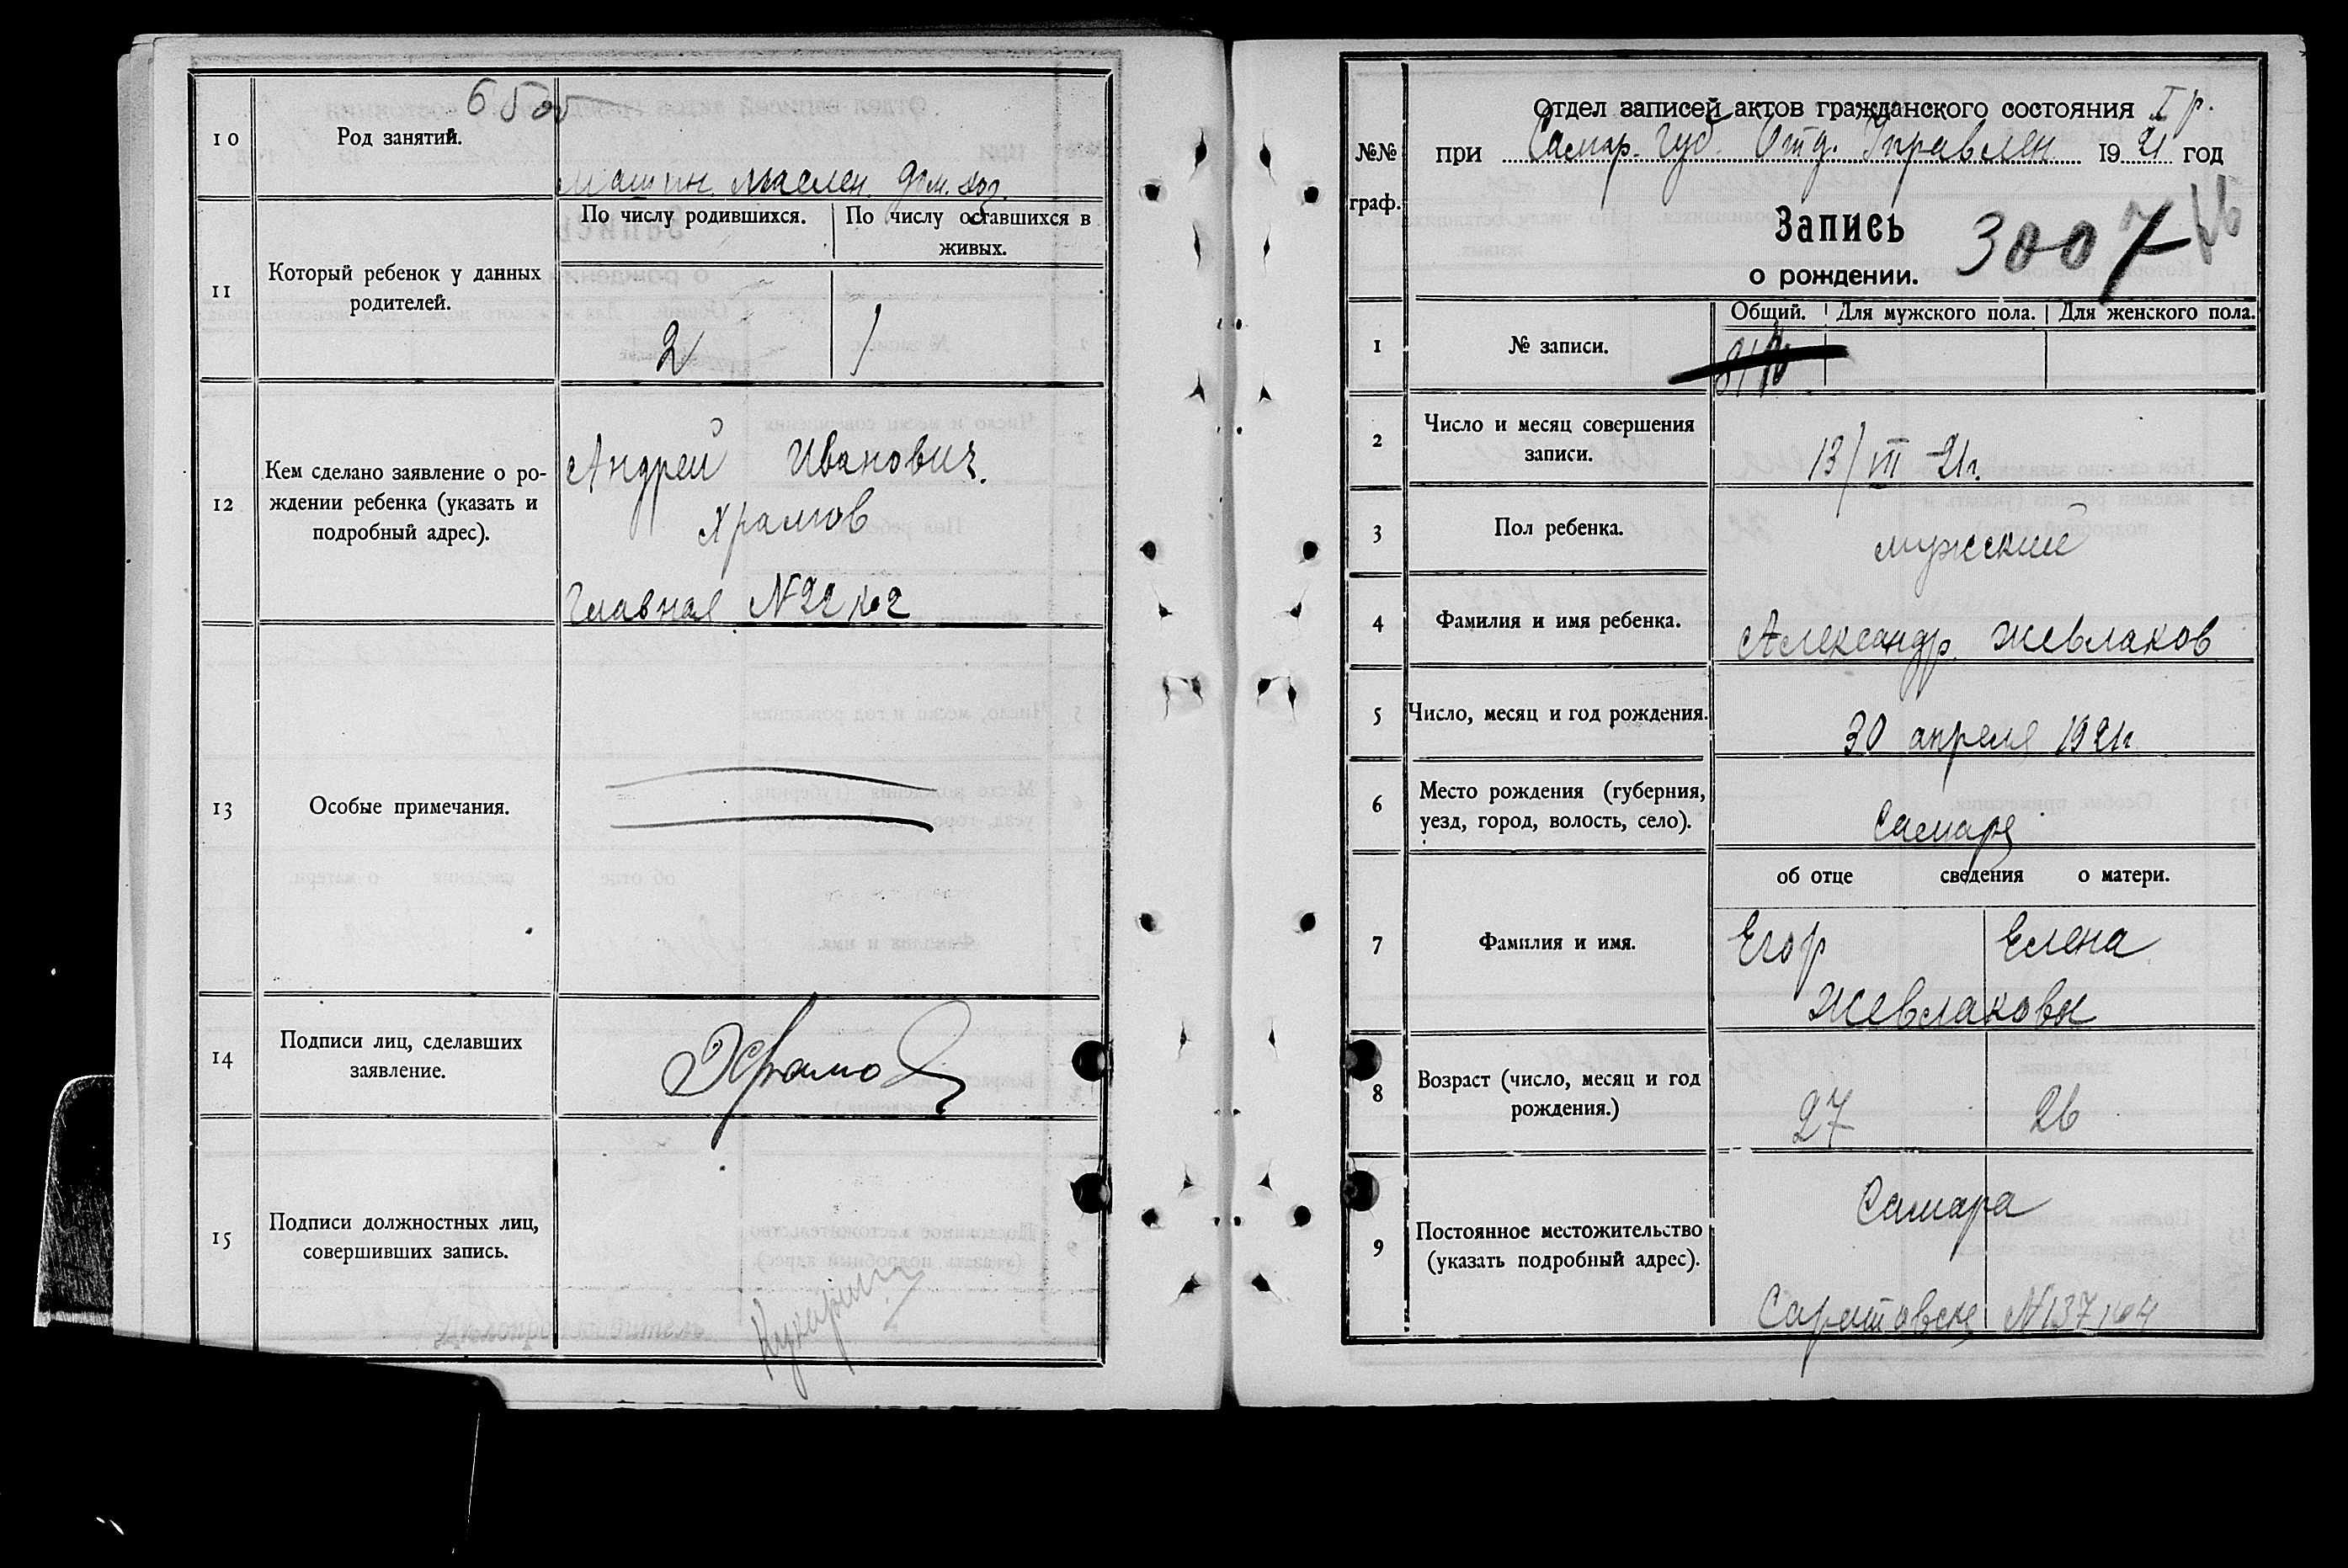 10
Род занятий.
Машин. маслен. дом. хоз.
11
Который ребенок у данных
родителей.
По числу родившихся.
По числу оставшихся в
живых.
2
1
12
Кем сделано заявление о ро-
ждении ребенка (указать и
подробный адрес).
Андрей Иванович
Храмов
Главная №22 к.2
13
Особые примечания.
14
Подписи лиц, сделавших
заявление.
Храмов
15
Подписи должностных лиц,
совершивших запись.
№№
граф.
Отдел записей актов гражданского состояния I р.
при Самар. Губ. Отд. Управлен. 1921 год
Запись
3007
о рождении.
1
№ записи.
Общий.
Для мужского пола.
Для женского пола.
2
Число и месяц совершения
записи.
13/VII-21г.
3
Пол ребенка.
мужский
4
Фамилия и имя ребенка.
Александр Жевлаков
5
Число, месяц и год рождения.
30 апреля 1921г.
6
Место рождения (губерния,
уезд, город, волость, село).
Самара
об отце сведения о матери.
7
Фамилия и имя.
Егор
Елена
Жевлаковы
8
Возраст (число, месяц и год
рождения.)
27
26
9
Постоянное местожительство
(указать подробный адрес).
Самара
Саратовск. №137